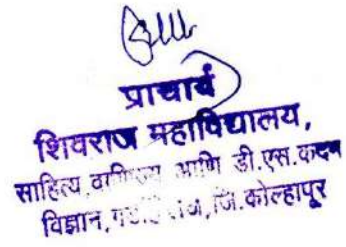 प्राचार्य
शिवराज महाविद्यालय,
साहित्य, वाणिज्य आणि डी.एस.कदम
विज्ञान, जि.कोल्हापूर